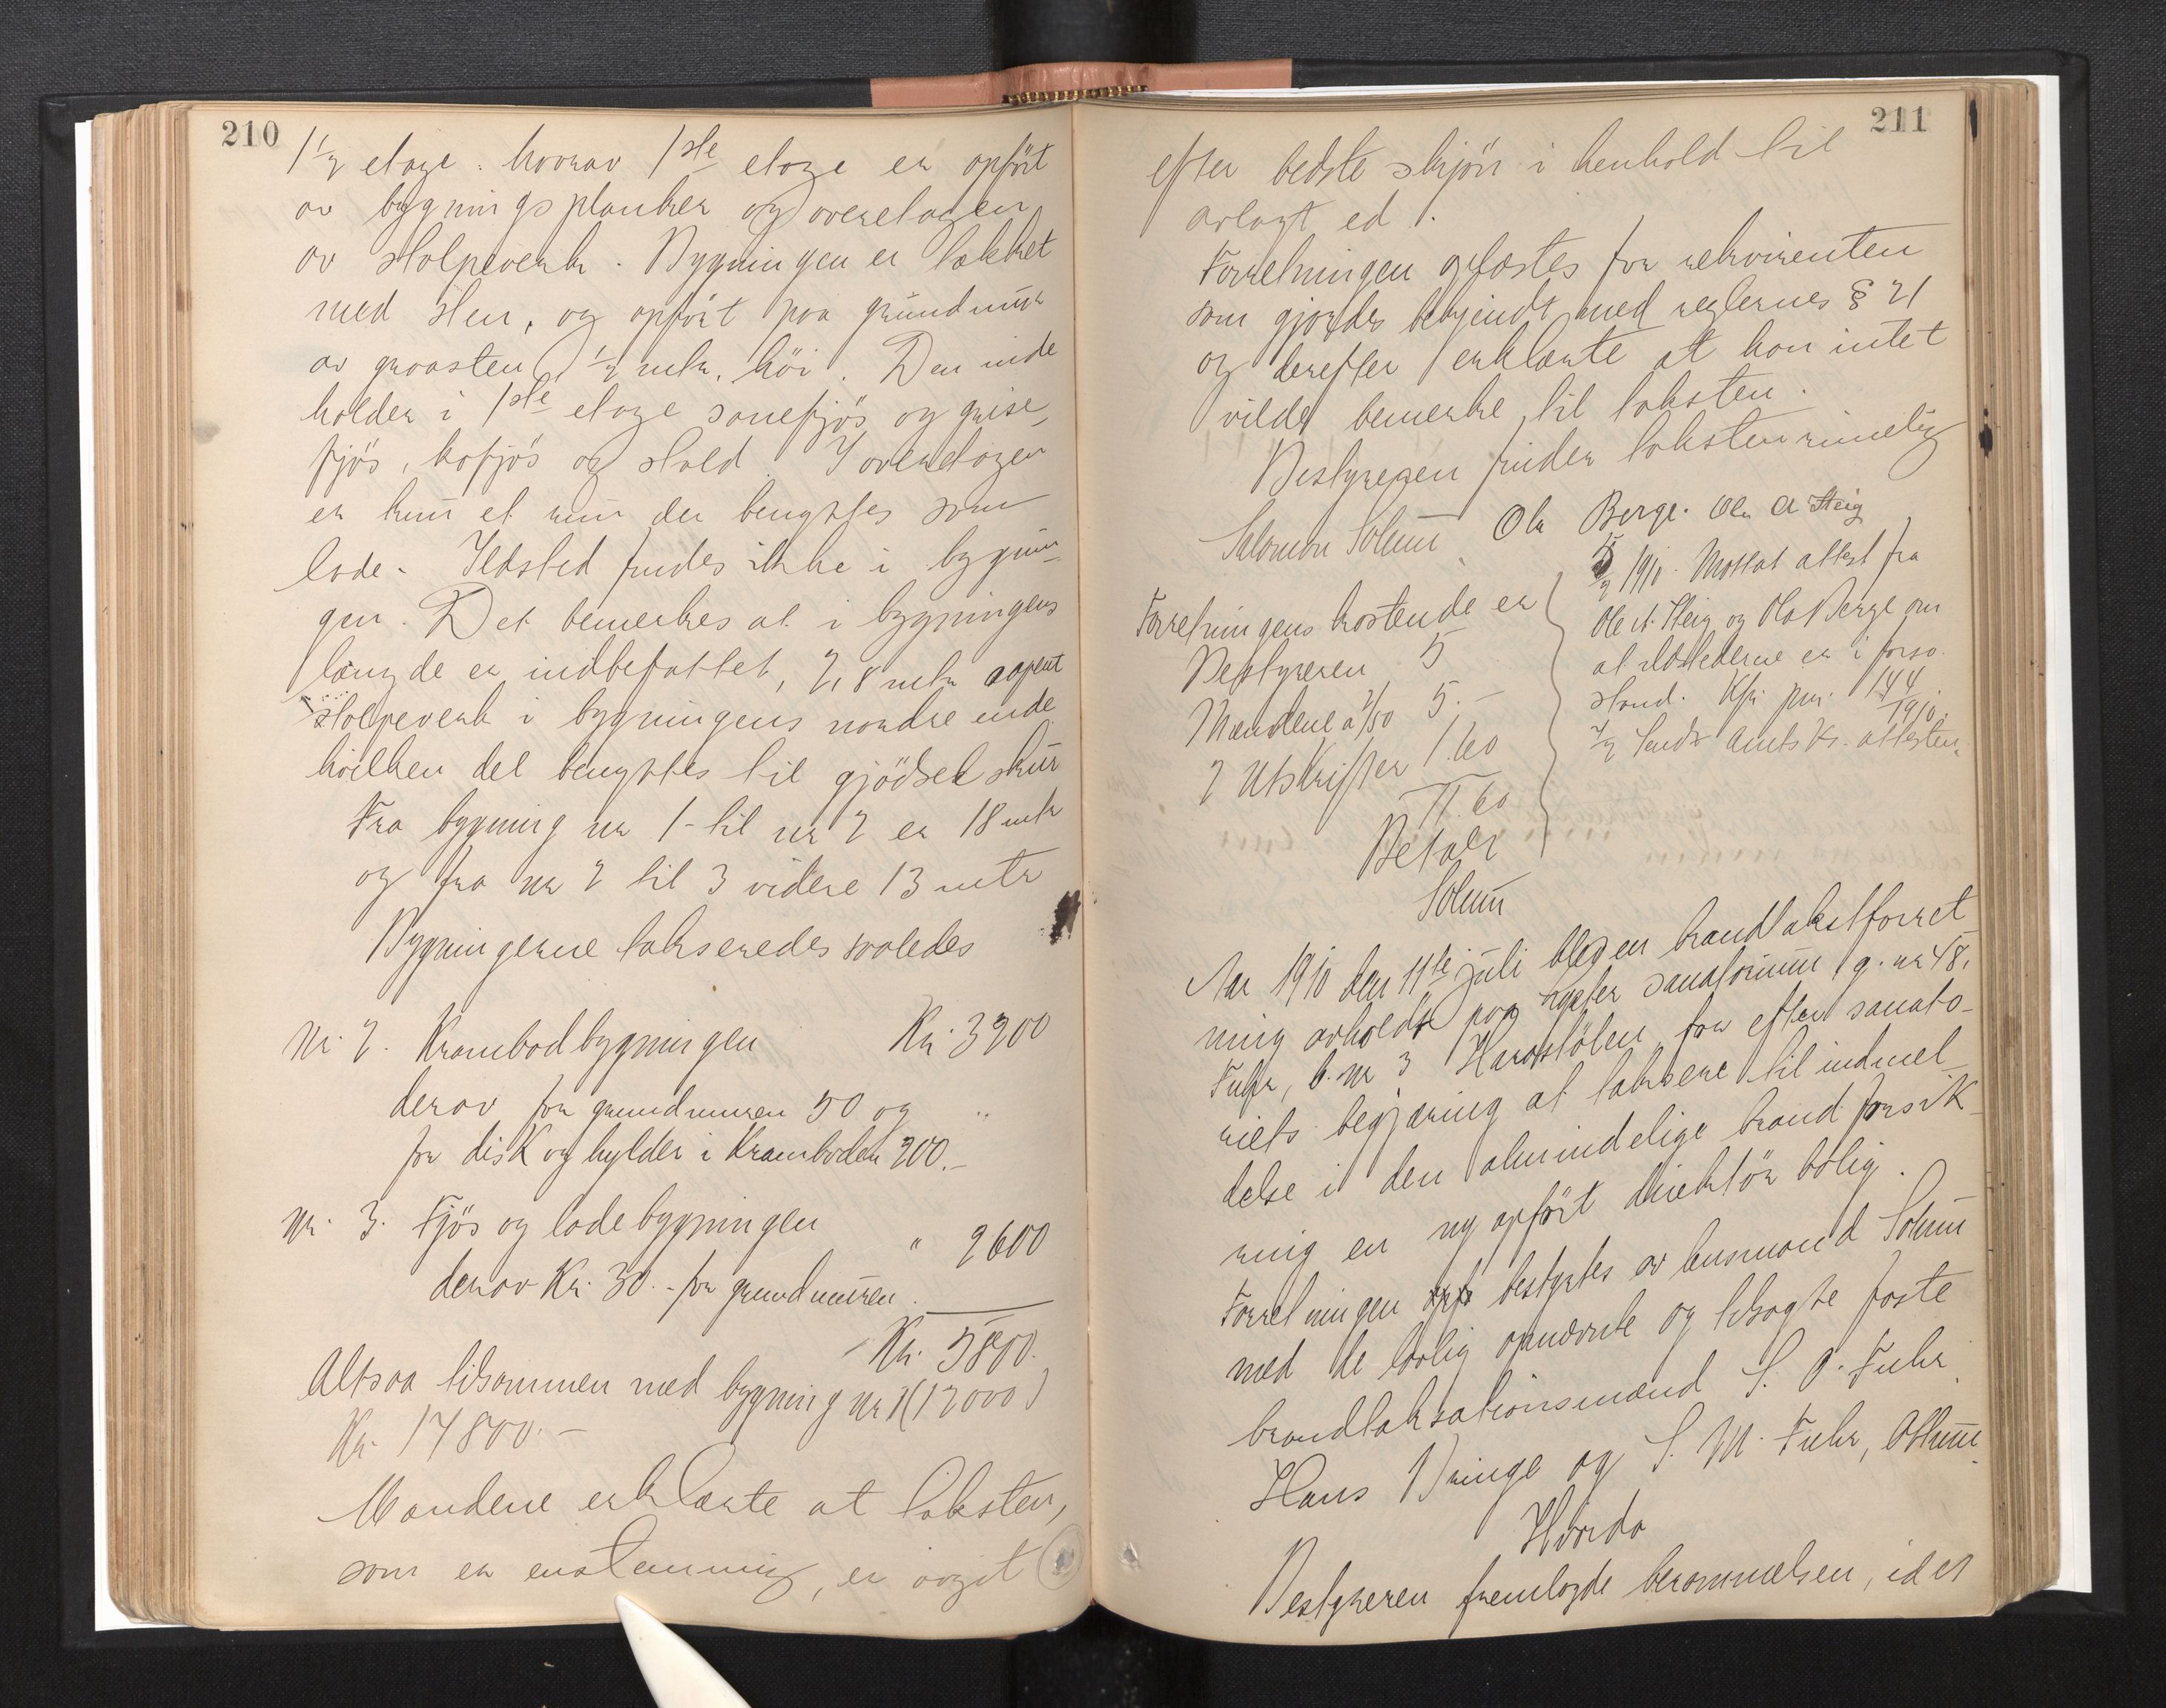 210
1 1/2 etage. hvorav 1ste etage er opført
av bygningsplanker og overetagen
av stolpeverk. Bygningen er tækket
med sten, og opført paa grundmur
av graasten 1/2 mtr. høi. Den inde
holder i 1ste etage sauefjøs og grise,
fjøs, kofjøs og stald. I overetagen
er kun et rum der benyttes som
lade. Ildsted findes ikke i bygnin-
gen. Det bemerkes at i bygningens
længde er indbefattet, 2,8 mtr aapent
stolpeverk i bygningens nordre ende
hvilken del benyttes til gjødselskur
Fra bygning nr 1 til nr 2 er 18 mtr
og fra nr 2 til 3 videre 13 mtr
Bygningerne takseredes saaledes
Nr. 2. Krambodbygningen Kr. 3200
derav for grundmuren 50 og "
for disk og hylder i Kramboden 200.-
Nr. 3. Fjøs og ladebygningen
" 2600
derav Kr. 30.- for grundmuren.
Kr. 5800.
Altsaa tilsammen med bygning nr 1 (12000)
Kr. 17800.-
Mændene erklærte at taksten,
som er enstemmig, er avgit
211
efter bedste skjøn i henhold til
avlagt ed.
Forretningen oplæstes for rekvirenten
som gjordes bekjendt med reglernes § 21
og derefter erklærte at han intet
vilde bemerke til taksten.
Bestyreren finder taksten rimelig
Salomon Solum Ola Berge. Ole A Steig
Forretningens kostende er
Bestyreren 5
Mændene a 2/50 5.-
2 Utskrifter 1.60
11.60
Betalt
Solum
5/2 1910. Mottat attest fra
Ole A. Steig og Ola Berge om
at ildstederne er i forso.
stand. Kfr. jnr. 144/1910.
7/2 Sendt Amts Ks. attesten.
Aar 1910 den 11te juli blev en brandtakstforret
ning avholdt paa Lyster sanatorium g. nr 48,
Fuhr, b. nr 3 Harastølen for efter sanato-
riets begjæring at taksere til indmel
delse i den almindelige brandforsik-
ring en ny opført direktør bolig.
Forretningen bestyrtes av lensmand Solum
med de lovlig opnævnte og tilsagte faste
brandtaksationsmænd S. O. Fuhr
Hans Bringe og S. M. Fuhr, Ottum
Hvorda
Bestyreren fremlagde berammelsen, idet